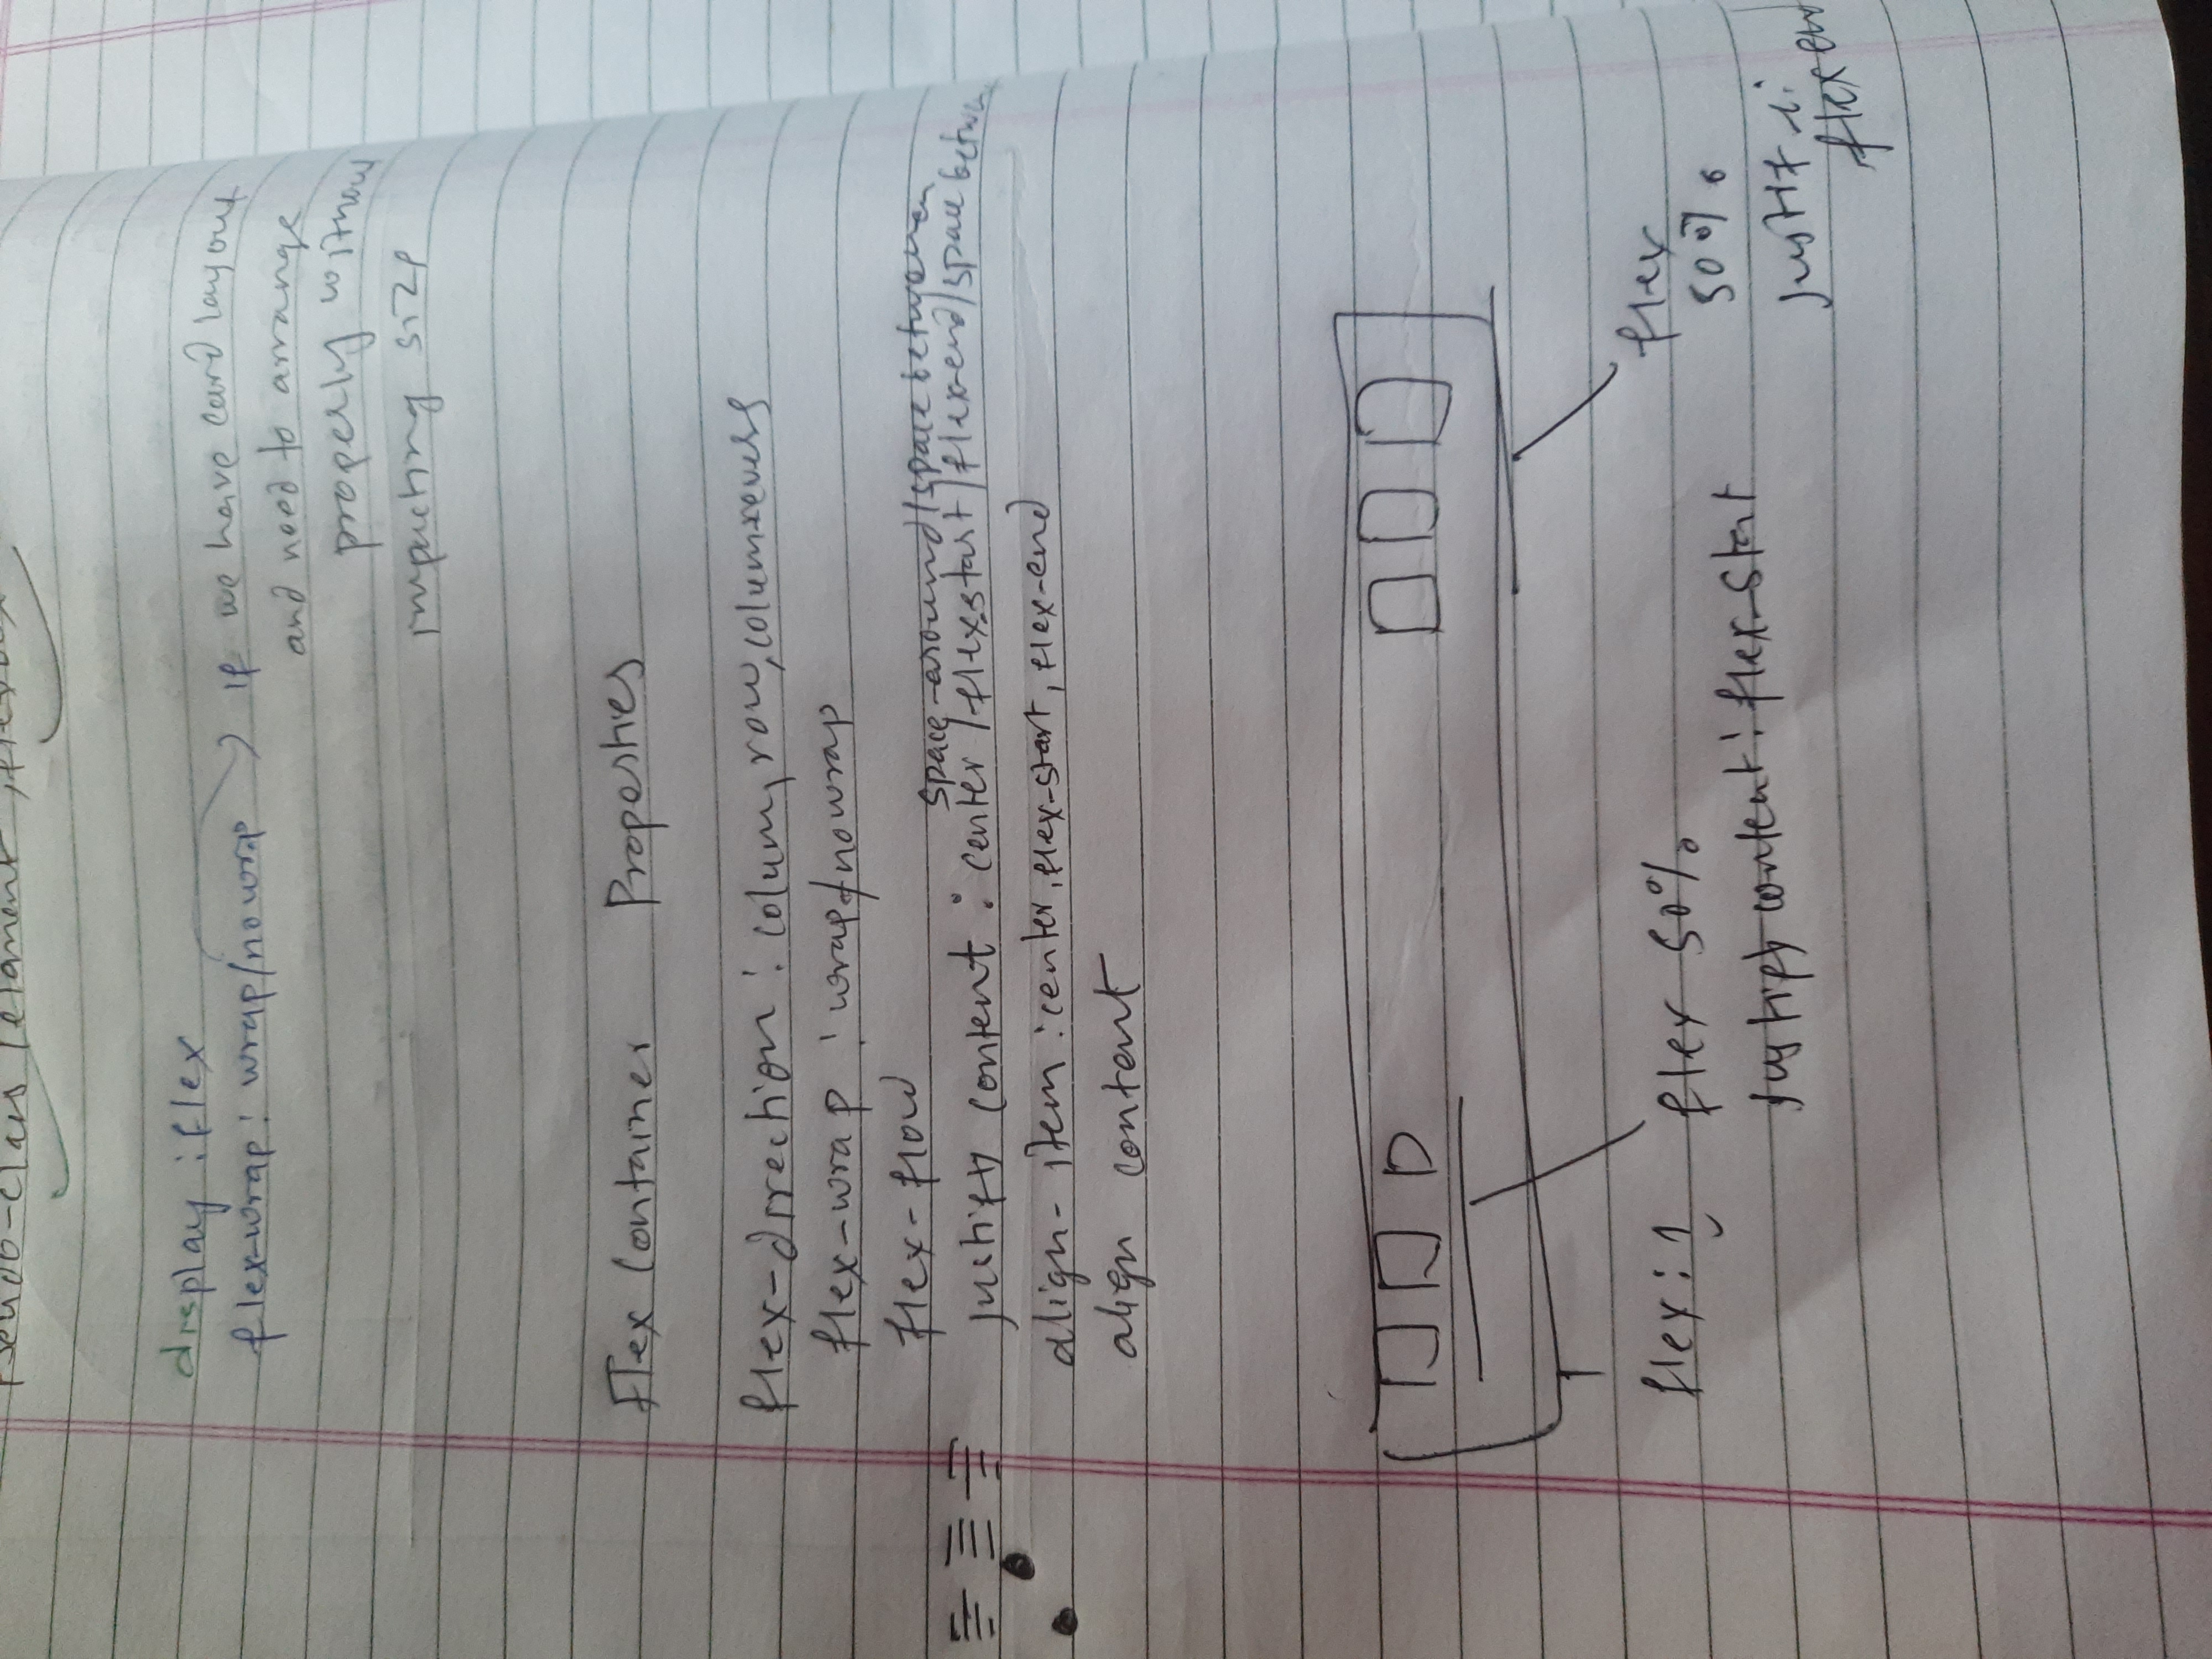 pseudo-class / element, flexbox
display : flex
flex-wrap : wrap/nowrap → if we have card layout
and need to arrange
properly without
impacting size
Flex Container Properties
flex-direction : colum, row, columreverse
flex-wrap : wrap/nowrap
flex-flow
space-around/space between
justify content : center / flex-start / flex-end / space between
align-item : center, flex-start, flex-end
align content
flex : 1 flex 50%
justify content : flex-start
flex
50%
flex end